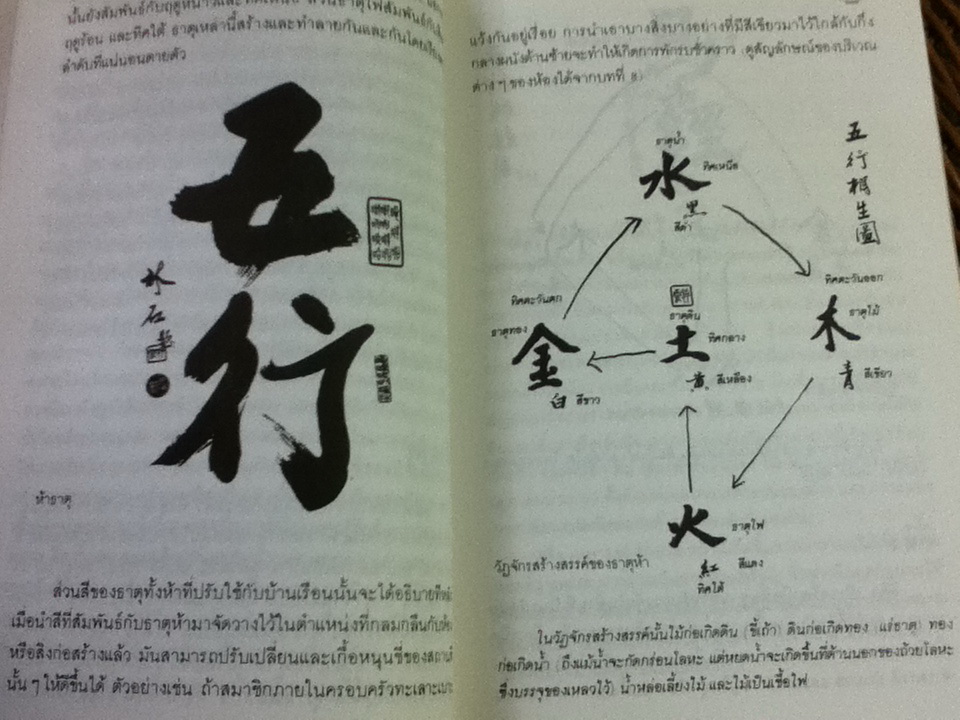 ฤดูร้อน และทิศใต้ ธาตุเหล่านี้สร้างและทำลายกันและกันโดยเรียง
ลำดับที่แน่นอนตายตัว
五
行
水
石
ห้าธาตุ
ส่วนสีของธาตุทั้งห้าที่ปรับใช้กับบ้านเรือนนั้นจะได้อธิบายที่หลัง
เมื่อนำสีที่สัมพันธ์กับธาตุห้ามาจัดวางไว้ในตำแหน่งที่กลมกลืนกับ
หรือสิ่งก่อสร้างแล้ว มันสามารถปรับเปลี่ยนและเกื้อหนุนชี่ของสถานที่
นั้น ๆ ให้ดีขึ้นได้ ตัวอย่างเช่น ถ้าสมาชิกภายในครอบครัวทะเลาะเบาะ
แว้งกันอยู่เรื่อย การนำเอาบางสิ่งบางอย่างที่มีสีเขียวมาไว้ใกล้กับกึ่ง
กลางผนังด้านซ้ายจะทำให้เกิดการพักรบชั่วคราว (ดูสัญลักษณ์ของบริเวณ
ต่าง ๆ ของห้องได้จากบทที่ 8)
五行相生圖
ธาตุน้ำ
水 ทิศเหนือ
黑
สีดำ
ทิศตะวันออก
木 ธาตุไม้
青 สีเขียว
ทิศตะวันตก
ธาตุทอง 金
白 สีขาว
ธาตุดิน
土 ทิศกลาง
黄 สีเหลือง
火 ธาตุไฟ
紅 สีแดง
ทิศใต้
วัฏจักรสร้างสรรค์ของธาตุห้า
ในวัฏจักรสร้างสรรค์นั้นไม้ก่อเกิดดิน (ขี้เถ้า) ดินก่อเกิดทอง (แร่ธาตุ) ทอง
ก่อเกิดน้ำ (ถึงแม้น้ำจะกัดกร่อนโลหะ แต่หยดน้ำจะเกิดขึ้นที่ด้านนอกของถ้วยโลหะ
ซึ่งบรรจุของเหลวไว้) น้ำหล่อเลี้ยงไม้ และไม้เป็นเชื้อไฟ